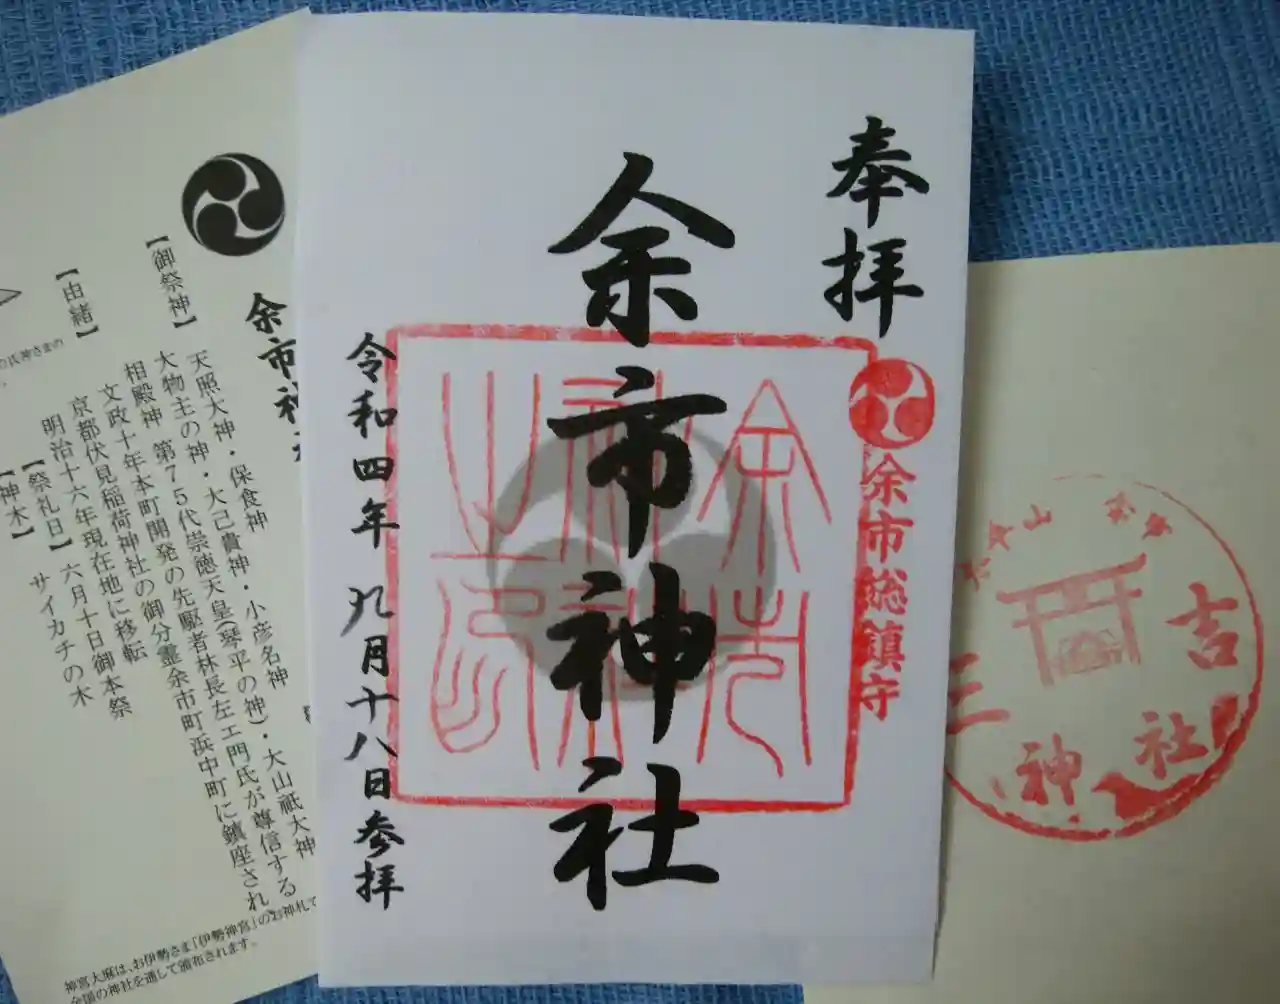 奉拝
余市総鎮守
余市神社
令和四年 九月十八日参拝
余市神
【御祭神】
天照大神・保食神
大物主の神・大己貴神・小彦名神
相殿神 第75代崇徳天皇(琴平の神)・大山祇大神
【由緒】
文政十年本町開発の先駆者林長左エ門氏が尊信する
京都伏見稲荷神社の御分霊余市町浜中町に鎮座され
明治十六年現在地に移転
【祭礼日】六月十日御本祭
【神木】 サイカチの木
の氏神さまの
神宮大麻は、お伊勢さま「伊勢神宮」のお神札で
全国の神社を通して頒布されます。
三吉
神社